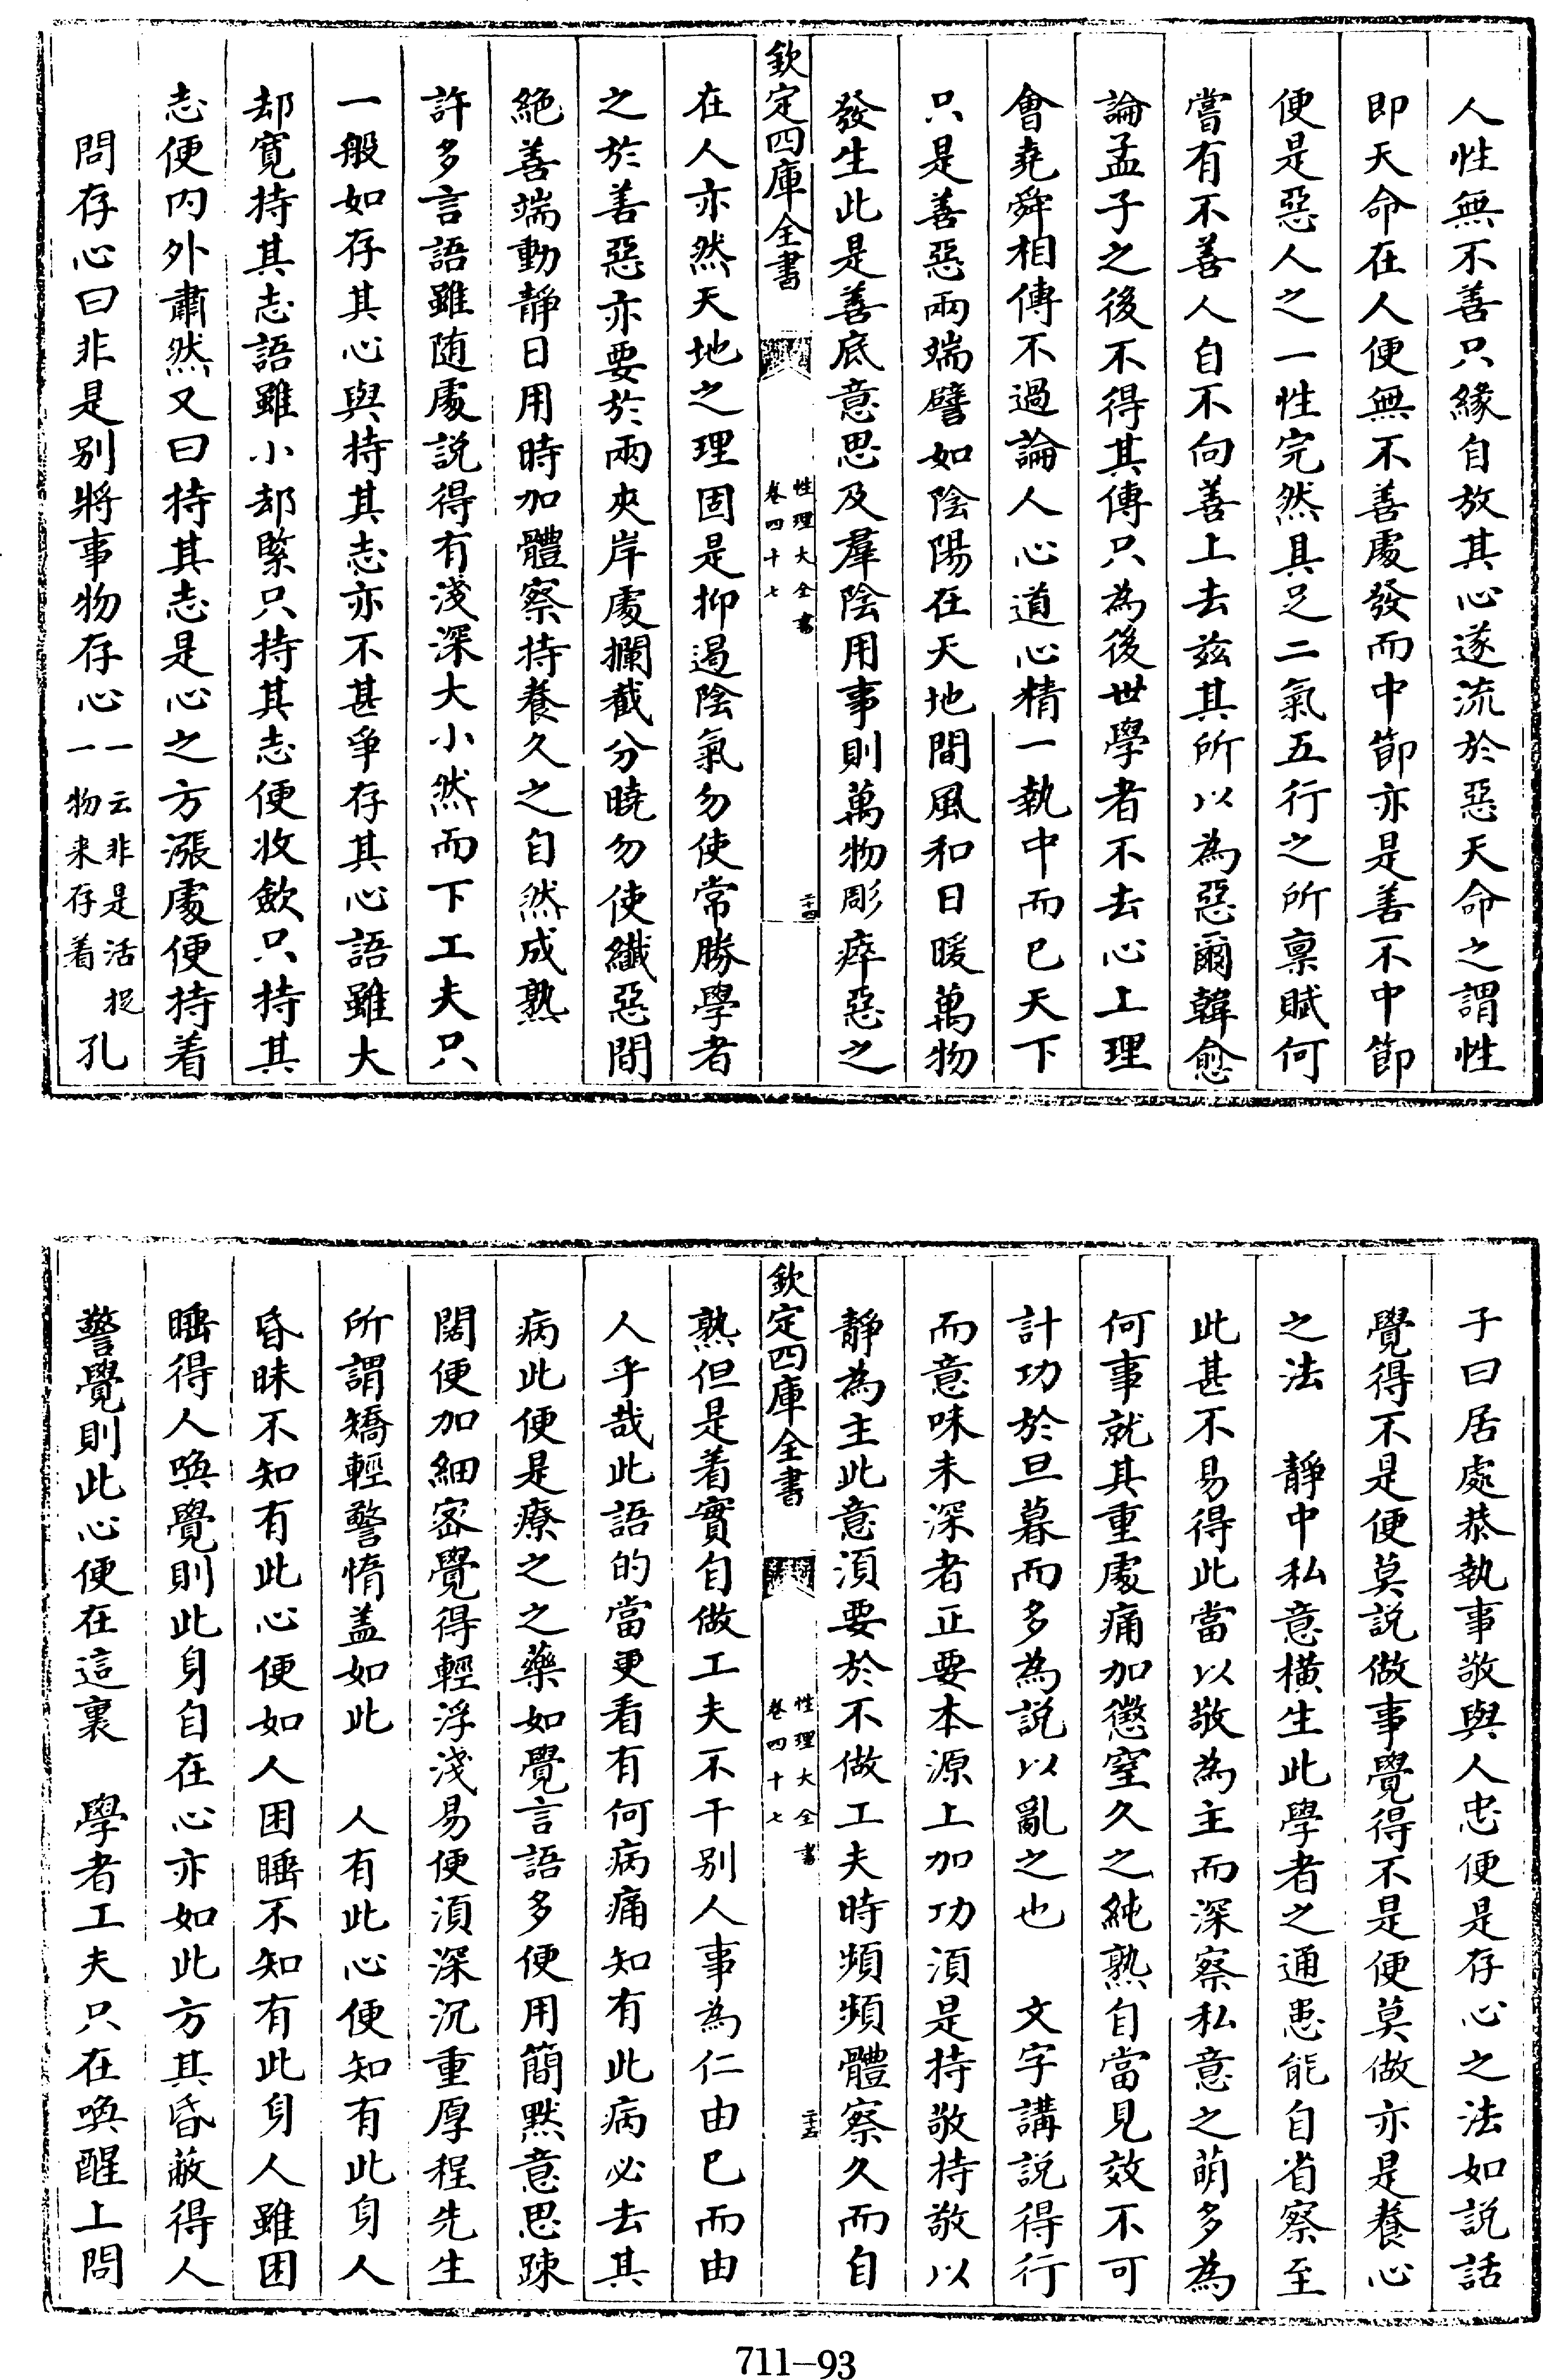 人性無不善只緣自放其心遂流於惡天命之謂性
即天命在人便無不善處發而中節亦是善不中節
便是惡人之一性完然具足二氣五行之所禀賦何
嘗有不善人自不向善上去兹其所以為惡爾韓愈
論孟子之後不得其傳只為後世學者不去心上理
會堯舜相傳不過論人心道心精一執中而已天下
只是善惡兩端譬如陰陽在天地間風和日暖萬物
發生此是善底意思及羣陰用事則萬物彫瘁惡之
欽定四庫全書
性理大全書
卷四十七
二十四
在人亦然天地之理固是抑遏陰氣勿使常勝學者
之於善惡亦要於兩夾岸處攔截分曉勿使纖惡間
絶善端動靜日用時加體察持養久之自然成熟
許多言語雖隨處説得有淺深大小然而下工夫只
一般如存其心與持其志亦不甚爭存其心語雖大
却寛持其志語雖小却緊只持其志便收歛只持其
志便内外肅然又曰持其志是心之方漲處便持着
問存心曰非是别將事物存心
一云非是活捉
一物来存着
孔
子曰居處恭執事敬與人忠便是存心之法如説話
覺得不是便莫説做事覺得不是便莫做亦是養心
之法　静中私意橫生此學者之通患能自省察至
此甚不易得此當以敬為主而深察私意之萌多為
何事就其重處痛加懲窒久之純熟自當見效不可
計功於旦暮而多為説以亂之也　文字講説得行
而意味未深者正要本源上加功須是持敬持敬以
靜為主此意須要於不做工夫時頻頻體察久而自
欽定四庫全書
性理大全書
卷四十七
二十五
熟但是着實自做工夫不干别人事為仁由已而由
人乎哉此語的當更看有何病痛知有此病必去其
病此便是療之之藥如覺言語多便用簡默意思踈
闊便加細宻覺得輕浮淺易便須深沉重厚程先生
所謂矯輕警惰盖如此　人有此心便知有此身人
昏昧不知有此心便如人困睡不知有此身人雖困
睡得人喚覺則此身自在心亦如此方其昏蔽得人
警覺則此心便在這裏　學者工夫只在喚醒上問
711-93